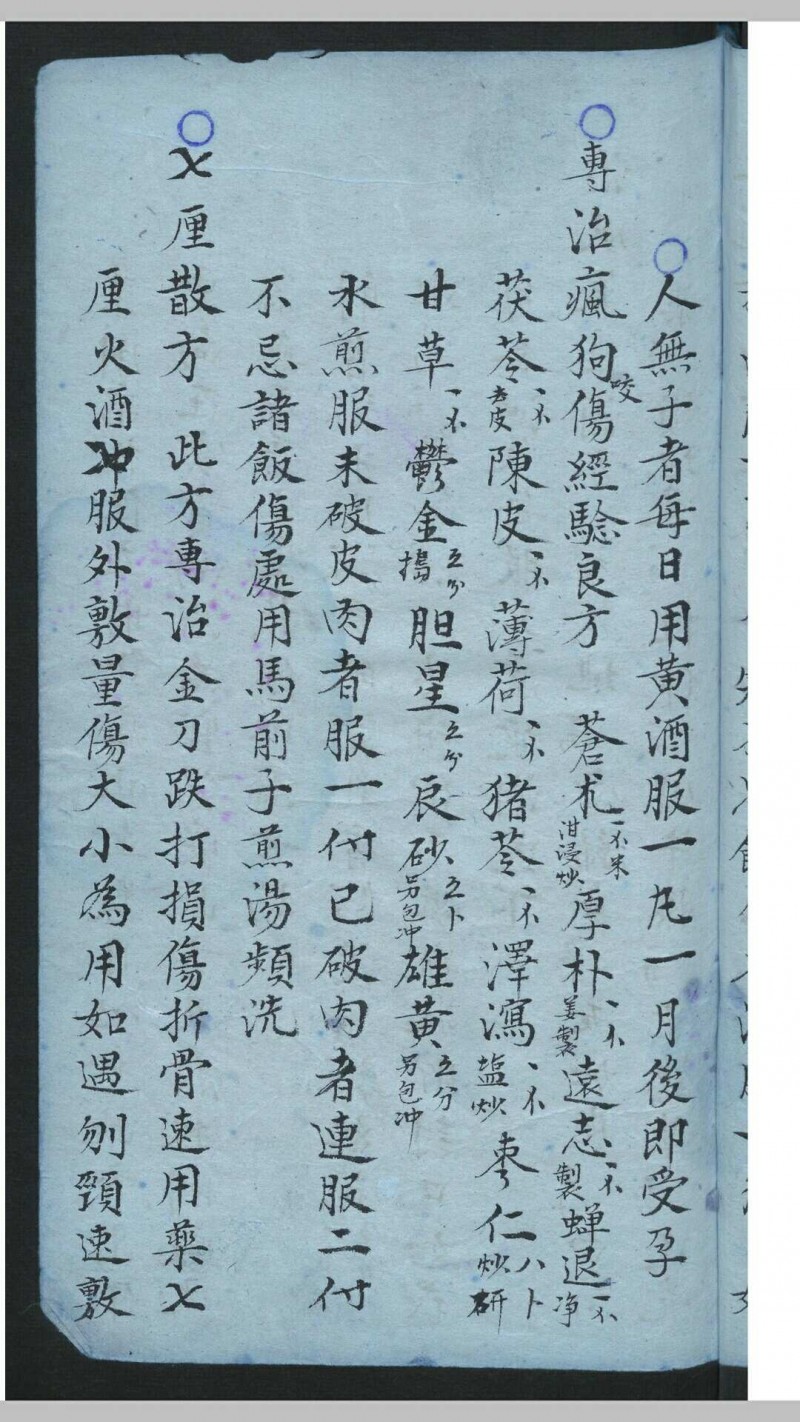 人無子者每日用黄酒服一丸一月後即受孕
專治瘋狗咬傷經驗良方 蒼朮一不米泔浸炒厚朴一不姜製遠志一不製蟬退一不净
茯苓一不去皮陳皮一不薄荷一不猪苓一不澤瀉一不塩炒枣仁八卜炒研
甘草一不鬱金五分搗胆星五分辰砂五卜另包冲雄黄五分另包冲
水煎服未破皮肉者服一付已破肉者連服二付
不忌諸飯傷處用馬前子煎湯頻洗
〤厘散方 此方專治金刀跌打損傷折骨速用藥〤
厘火酒冲服外敷量傷大小為用如遇刎頸速敷